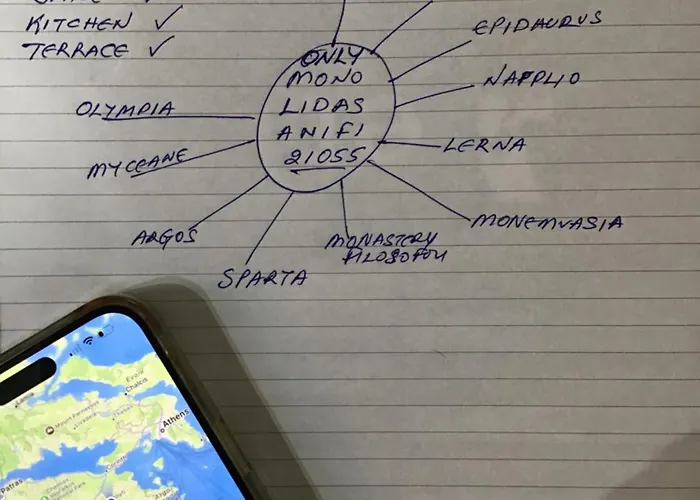 KITCHEN ✓
TERRACE ✓
ONLY
MONO
LIDAS
ANIFI
21055
EPIDAURUS
NAFPLIO
OLYMPIA
LERNA
MYCEANE
MONEMVASIA
ARGOS
MONASTERY
FILOSOFOU
SPARTA
Chalcis
Athens
Corinth
Patras
Argos